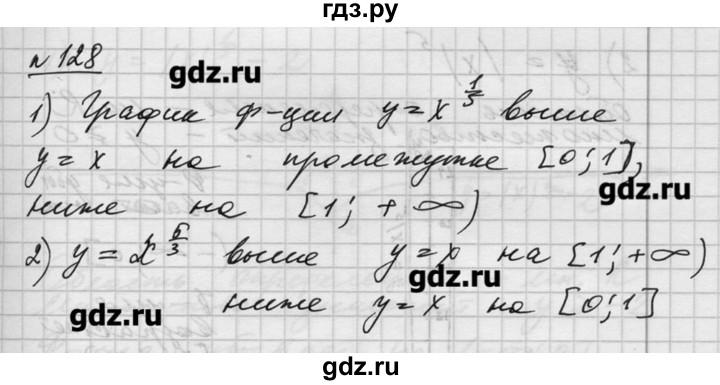 гдз.ру
№ 128
gdz.ru
1) График ф-ции y = x^{1/5} выше
y = x на промежутке [0; 1],
gdz.ru
ниже на [1; +∞)
2) y = x^{5/3} выше y = x на [1; +∞)
gdz.ru
gdz.ru
ниже y = x на [0; 1]
gdz.ru